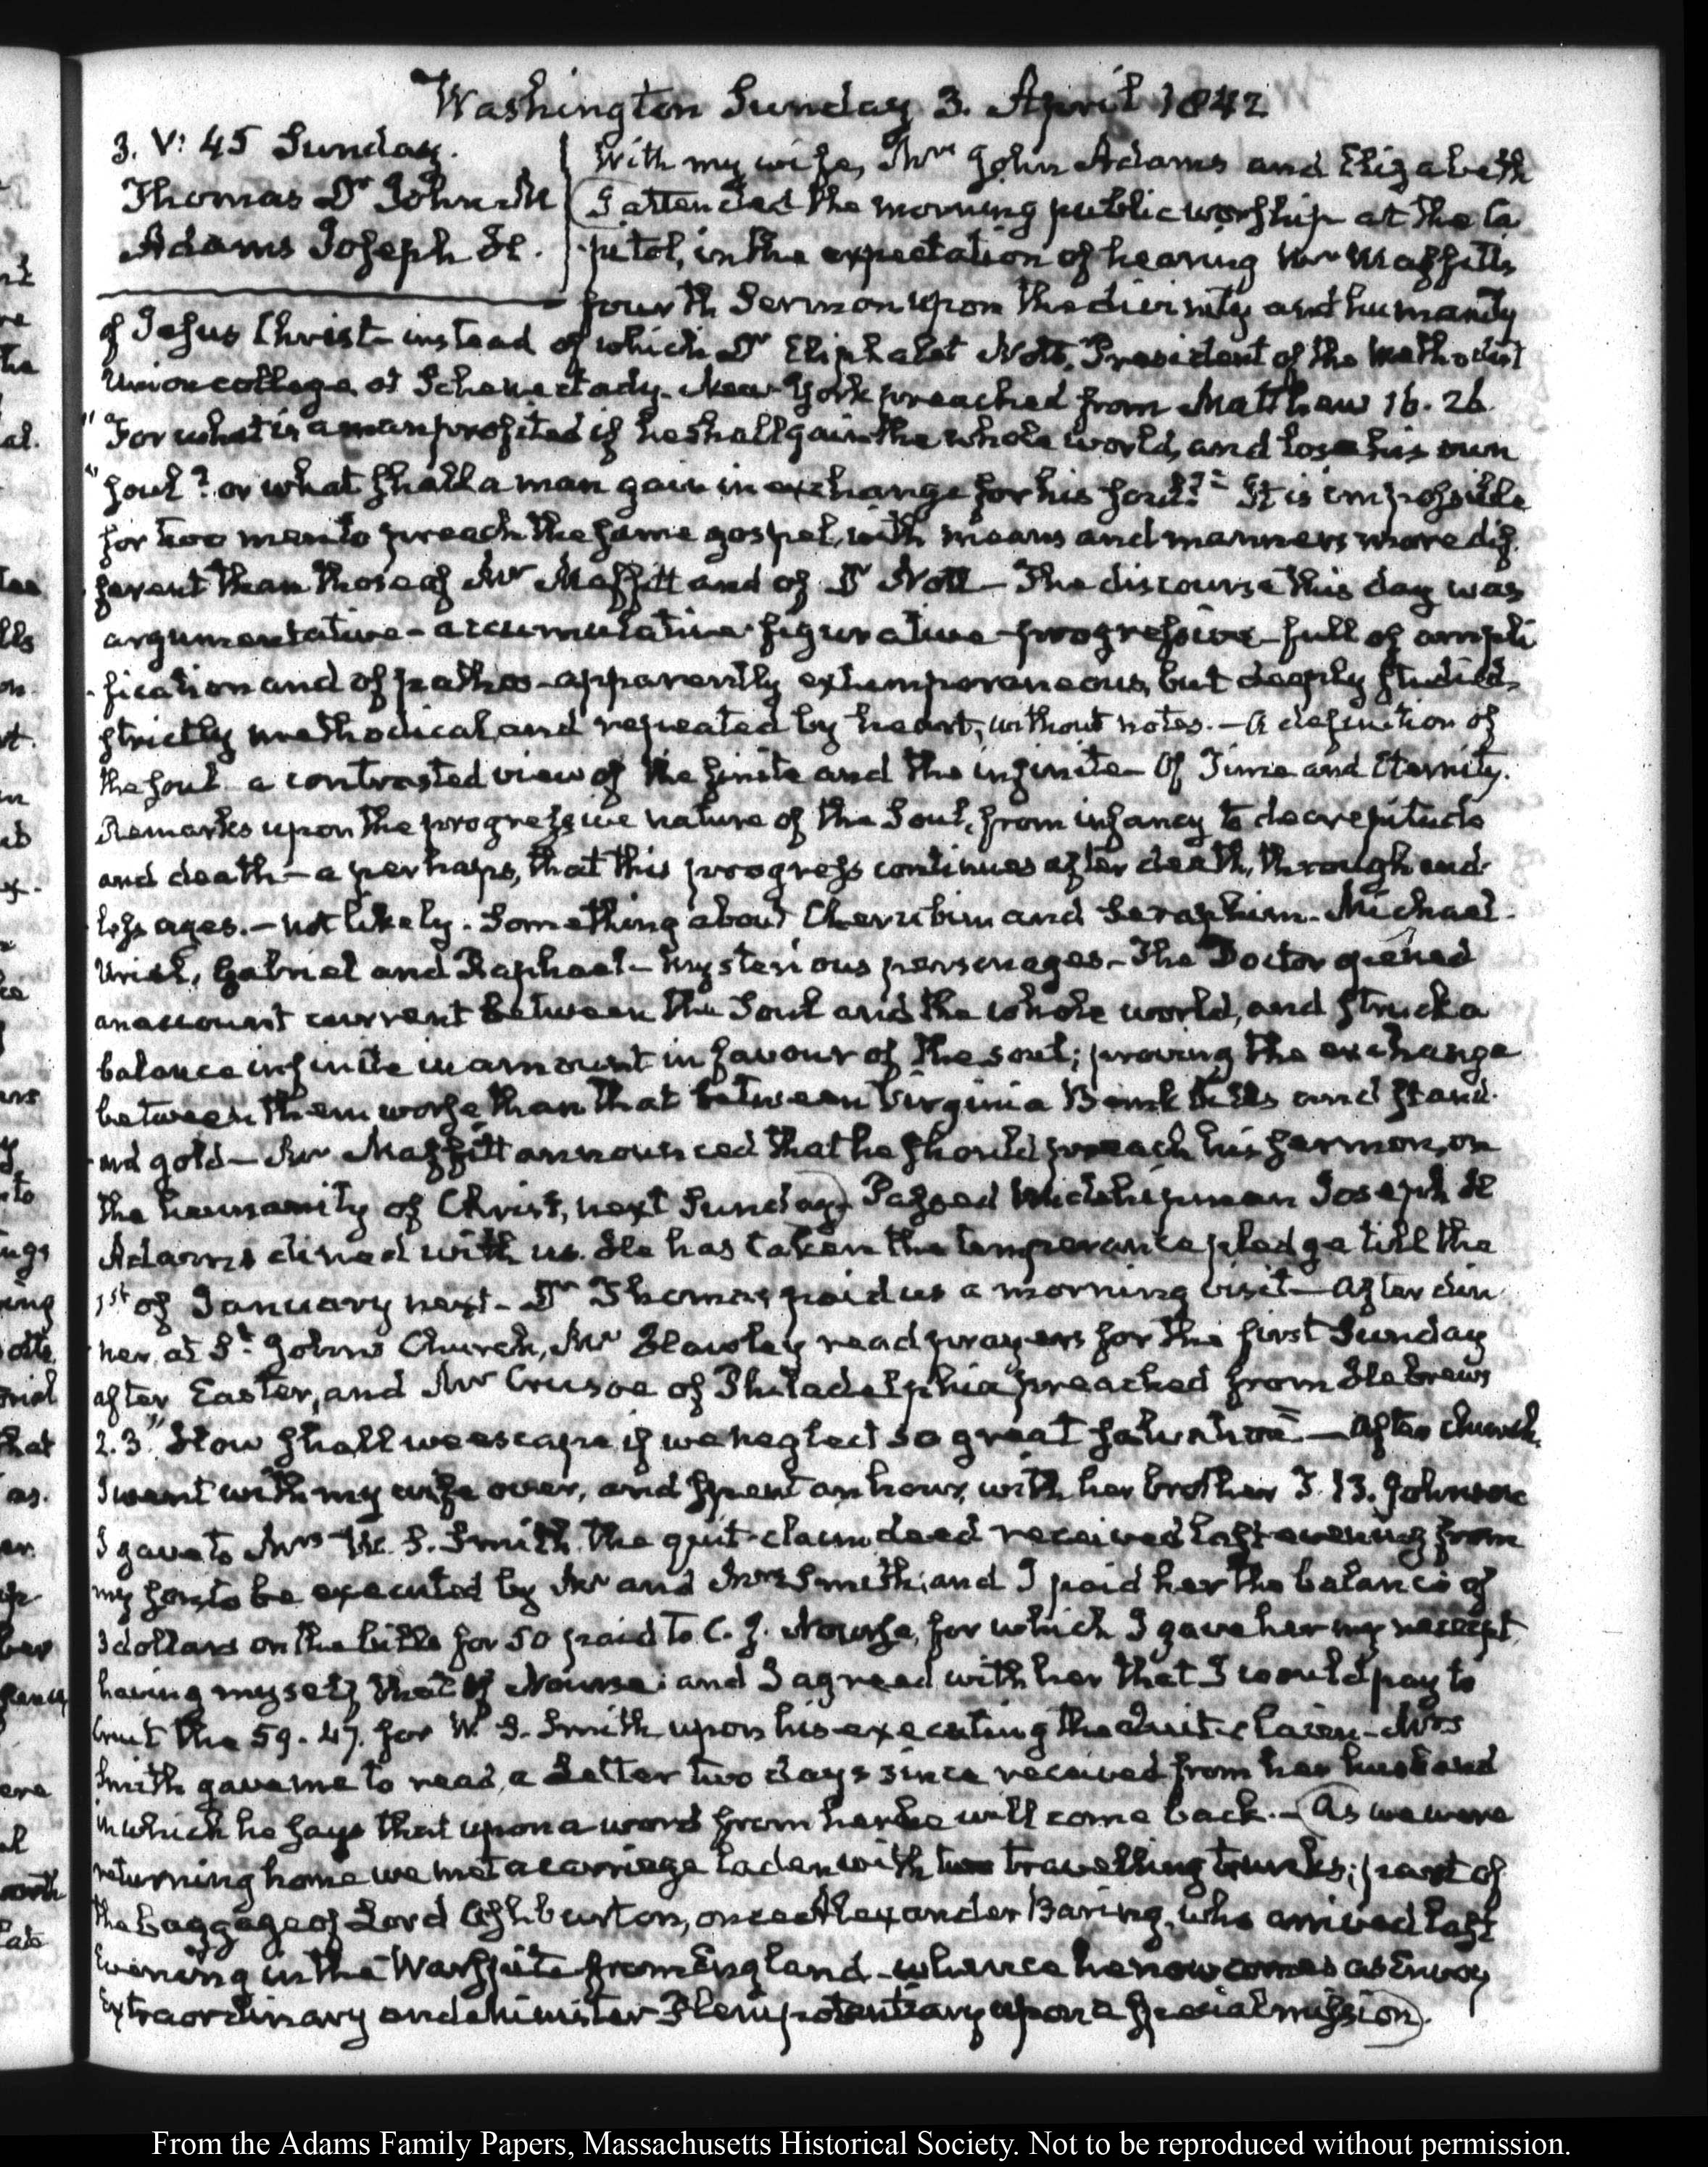 Washington Sunday 3. April 1842
3. V: 45 Sunday.
Thomas Dr John M
Adams Joseph H.
With my wife, Mrs John Adams and Elizabeth
I attended the morning public worship at the Ca
pitol, in the expectation of hearing Mr Maffitt's
fourth Sermon upon the divinity and humanity
of Jesus Christ- instead of which Dr Eliphalet Nott, President of the Methodist
Union college at Schenectady. New-York preached from Matthew 16. 26.
"For what is a man profited if he shall gain the whole world, and lose his own
"soul? or what shall a man gain in exchange for his soul?" It is impossible
for two men to preach the same gospel, with means and manners more dif-
ferent than those of Mr Maffitt and of Dr Nott - The discourse this day was
argumentative - accumulative - figurative - progressive - full of ampli
fication and of pathos - apparently extemporaneous, but deeply studied,
strictly methodical, and repeated by heart, without notes. - A definition of
the soul a contrasted view of the finite and the infinite - Of Time and Eternity.
Remarks upon the progressive nature of the Soul, from infancy to decrepitude
and death - a perhaps, that this progress continues after death, through end-
less ages. - not likely. Something about Cherubim and Seraphim. Michael.
Uriel, Gabriel and Raphael - mysterious personages - The Doctor opened
an account current between the Soul and the whole world, and struck a
balance infinite in amount in favour of the soul; proving the exchange
between them worse than that between Virginia Bank bills and stand-
ard gold - Mr Maffitt announced that he should preach his sermon, on
the humanity of Christ, next Sunday - Passed Midshipman Joseph H
Adams dined with us. He has taken the temperance pledge till the
1st of January next - Dr Thomas paid us a morning visit - After din
ner, at St Johns Church, Mr Hawley read prayers for the first Sunday
after Easter, and Mr Crusoe of Philadelphia preached from Hebrews
2. 3. "How shall we escape, if we neglect so great salvation" - After church,
I went with my wife over, and spent an hour, with her brother T. B. Johnson
I gave to Mrs W. S. Smith the quit-claim deed received last evening from
my son, to be executed by Mr and Mrs Smith; and I paid her the balance of
3 dollars on the bills for 50 paid to C. J. Nourse, for which I gave her my receipt,
having myself that of Nourse: and I agreed with her that I would pay to
the 59. 47. for W. S. Smith upon his executing the Quit-claim - Mrs
Smith gave me to read, a Letter two days since received from her husband
in which he says that upon a word from her he will come back. - As we were
returning home we met a carriage laden with travelling trunks; part of
the baggage of Lord Ashburton, once Alexander Baring, who arrived last
Evening in the Warspite from England - whence he now comes as Envoy
Extraordinary and Minister Plenipotentiary upon a special mission.
From the Adams Family Papers, Massachusetts Historical Society. Not to be reproduced without permission.